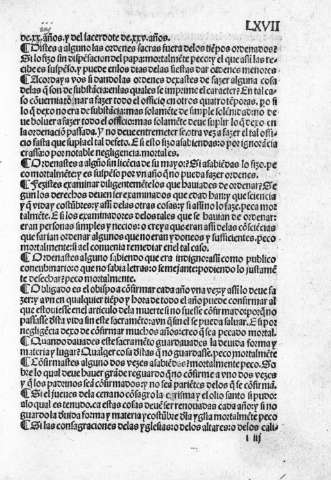 LXVII
de.xx.años.y del sacerdote de.xxv.años.
¶ Distes a alguno las ordenes sacras fuera delos tiẽpos ordenados?
Si lo fizo sin dispẽsaciõ del papa: mortalmẽte peco: y el que assi las re
cibe es suspẽso.y puede enlos dias delas fiestas dar ordenes menores
¶ Acordays vos si dando las ordenes dexastes de fazer alguna cosa
delas q̃ son de substãcia: enlas quales se imprime el caracter? En tal ca
so cõuernia tornar a fazer todo el officio en otras quatro tẽporas. po si
lo q̃ dexo no era de substãcia: mas solamẽte de simple solẽnidad: no de
ue boluer a fazer todo el officio: mas solamẽte cue suplir lo q̃ dexo en
la ordenaciõ passada. Y no deue entremeter se otra vez a fazer el tal offi
cio fasta que supla el tal defeto. E si ello fizo a sabiendas: o por ignorãcia
crassa: o por notable negligencia. mortal es.
¶ Ordenastes a alguno sin licẽcia de su mayor? Si a sabiẽdas lo fizo. pe
co mortalmẽte: y es suspẽso por vn año q̃ no pueda fazer ordenes.
¶ Fezistes examinar diligentemẽte los que hauiades de ordenar? Se
gun los derechos deuen ser examinados que edad han: y que sciencia
y q̃ vida: y costũbres: y assi delas otras cosas: y si assi no lo faze. peco mor
talmẽte. E si los examinadores delos tales que se hauian de ordenar:
eran personas simples y necios: o creya que eran assi delas cõsciẽcias
que farian ordenar algunos que no eran ydoneos y sufficientes. peco
mortalmente: si al comuenia remediar en el tal caso.
¶ Ordenastes alguno sabiendo que era indigno: assi como publico
concubinario: o que no sabia letras: o semejante: podiendo lo justamẽ
te desechar? peco mortalmente.
¶ Obligado es el obispo a cõfirmar cada año vna vez: y assi lo deue fa
zer: y avn en qualquier tiẽpo y hora de todo el año puede confirmar al
que estouiesse en el articulo dela muerte si no fuesse cõfirmado: porq̃ no
passasse desta vida sin este sacramẽto: avn q̃ sin el se pueda saluar. E si por
negligẽcia dexo de cõfirmar muchos años: creo q̃ sea pecado mortal.
¶ Quando dauades este sacramẽto guardauades la deuida forma y
materia y lugar? Qualqer cosa distas q̃ no guardasse. peco mortalmẽte
¶ Cõfirmastes alguno dos vezes a sabiẽdas? mortalmente peco. So
bre lo qual deue hauer grãde reguardo q̃ no cõfirme a vno dos vezes
y q̃ los padrinos seã cõfirmados: y no seã pariẽtes delos q̃ se cõfirmã.
¶ Si el jueues dela cena no cõsagro la crisma y el olio santo si pudo:
alo qual es tenudo. ca estas cosas deuẽ ser renouadas cada año: y si no
guardo la deuida forma y materia y costũbre dla yglia mortalmẽte peco
¶ Si las consagraciones delas yglesias: o delos altares: o delos cali-
i iij